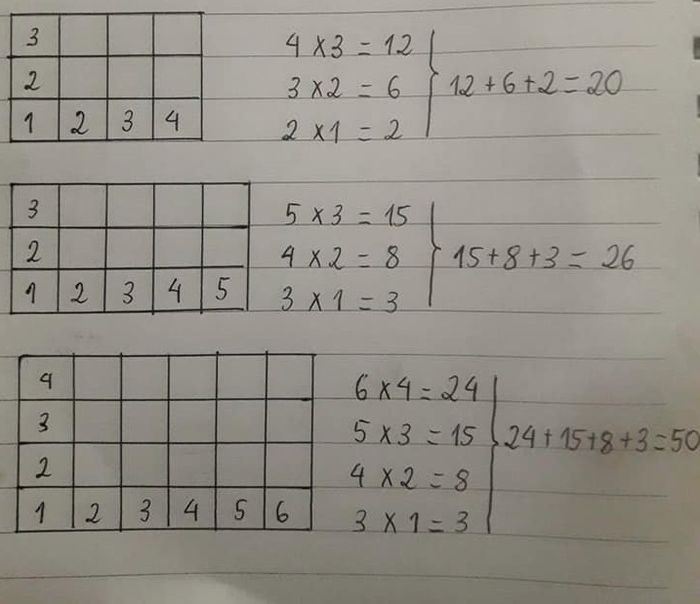 3
2
1 2 3 4
4 x 3 = 12
3 x 2 = 6
2 x 1 = 2
12 + 6 + 2 = 20
3
2
1 2 3 4 5
5 x 3 = 15
4 x 2 = 8
3 x 1 = 3
15 + 8 + 3 = 26
4
3
2
1 2 3 4 5 6
6 x 4 = 24
5 x 3 = 15
4 x 2 = 8
3 x 1 = 3
24 + 15 + 8 + 3 = 50